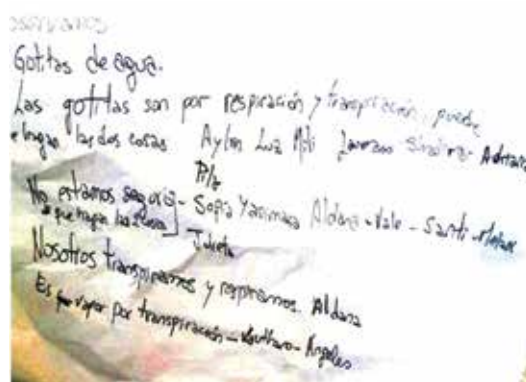 Observamos
Gotitas de agua.
Las gotitas son por respiración y transpiración. puede
hagan las dos cosas Aylin Luz Mili Lautaro Adriana
Pilz
No estamos seguros - Sofia Yanimara Aldana - Vale - Santi -
que hagan las dos cosas Julieta
Nosotros transpiramos y respiramos. Aldana
Es vapor por transpiración - Lautharo - Angeles